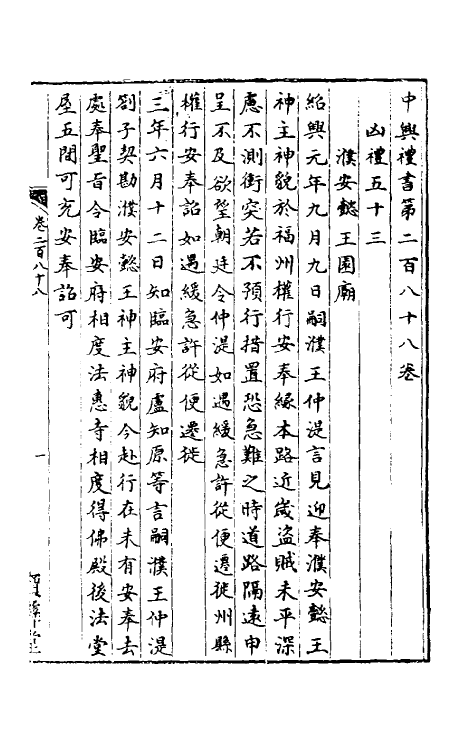 中興禮書第二百八十八卷
凶禮五十三
濮安懿王園廟
紹興元年九月九日嗣濮王仲湜言見迎奉濮安懿王
神主神貌於福州權行安奉緣本路近歲盜賊未平深
慮不測衝突若不預行措置恐急難之時道路隔遠申
呈不及欲望朝廷令仲湜如遇緩急許從便遷徙州縣
權行安奉詔如遇緩急許從便遷徙
三年六月十二日知臨安府盧知原等言嗣濮王仲湜
劄子契勘濮安懿王神主神貌今赴行在未有安奉去
處奉聖旨令臨安府相度法惠寺相度得佛殿後法堂
屋五間可充安奉詔可
卷二百八十八
一